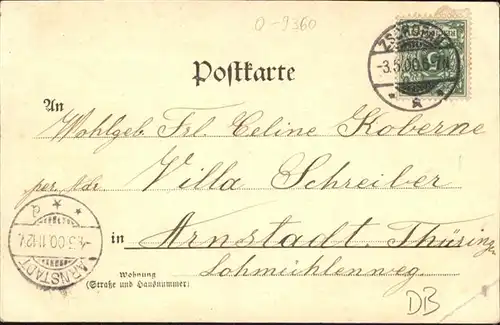 O-9360
ZSCHOPAU
-3.5.00.6-7N
Postkarte
An
Wohlgeb. Frl. Celine Koberne
per. Adr. Villa Schreiber
in Arnstadt Thüringen
Lohmühlenweg
Wohnung
(Straße und Hausnummer)
ARNSTADT
-4.5.00.11-12V.
DB